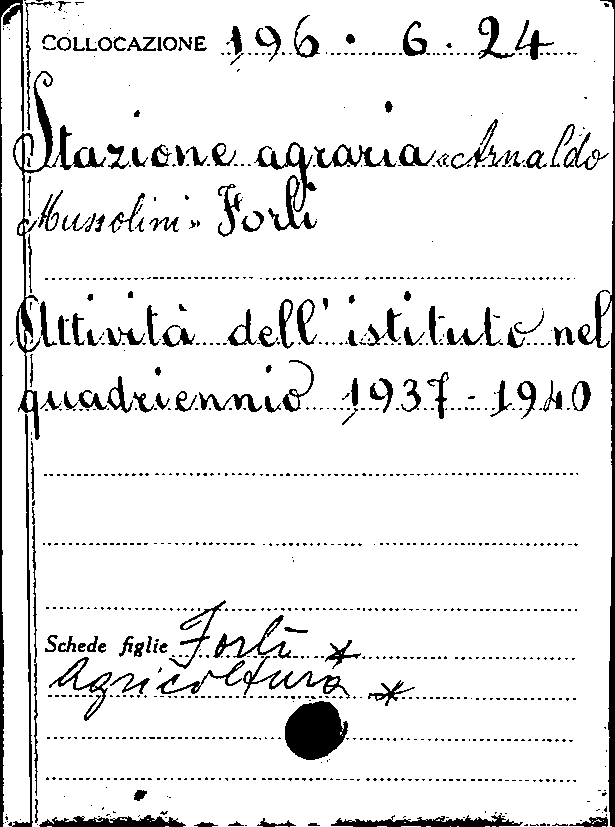 COLLOCAZIONE 196 . 6 . 24
Stazione agraria «Arnaldo
Mussolini» Forlì
Attività dell'istituto nel
quadriennio 1937 - 1940
Schede figlie Forlì *
Agricoltura *